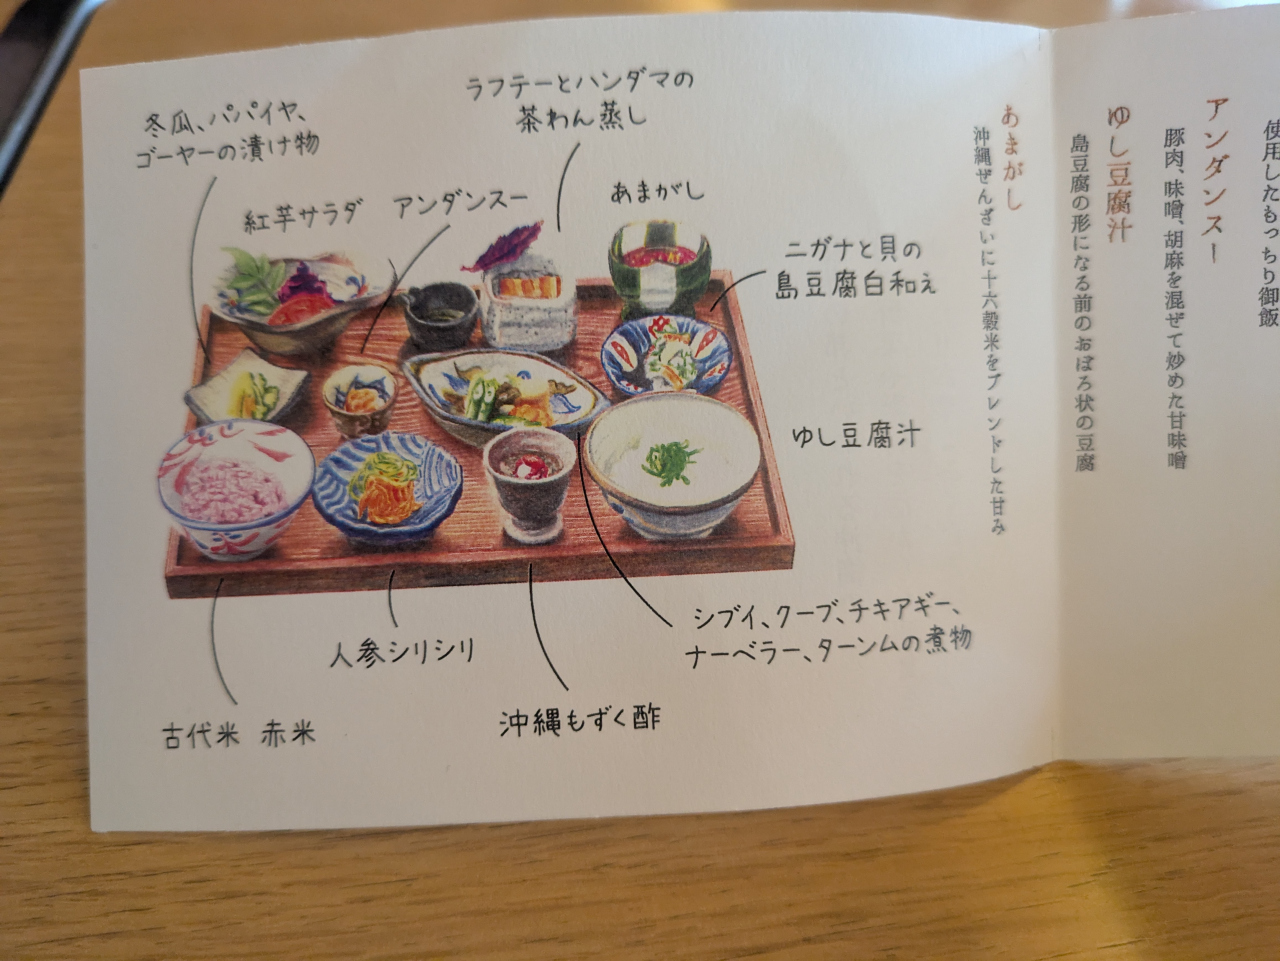 ラフテーとハンダマの
茶わん蒸し
冬瓜、パパイヤ、
ゴーヤーの漬け物
紅芋サラダ
アンダンスー
あまがし
ニガナと貝の
島豆腐白和え
ゆし豆腐汁
シブイ、クーブ、チキアギー、
ナーベラー、ターンムの煮物
人参シリシリ
沖縄もずく酢
古代米 赤米
使用したもっちり御飯
アンダンスー
豚肉、味噌、胡麻を混ぜて炒めた甘味噌
ゆし豆腐汁
島豆腐の形になる前のおぼろ状の豆腐
あまがし
沖縄ぜんざいに十六穀米をブレンドした甘み